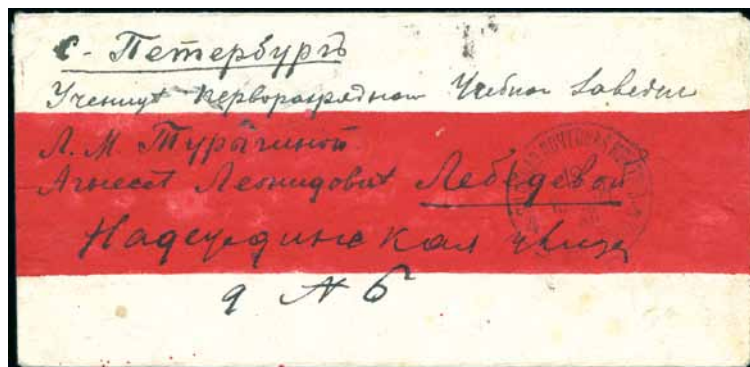 С-Петербургъ
Ученицѣ Перворазрядном Учебном Заведен
Л. М. Турыгиной
Агнессѣ Леонидовнѣ Лебедевой
Надеждинская улица
д № 6